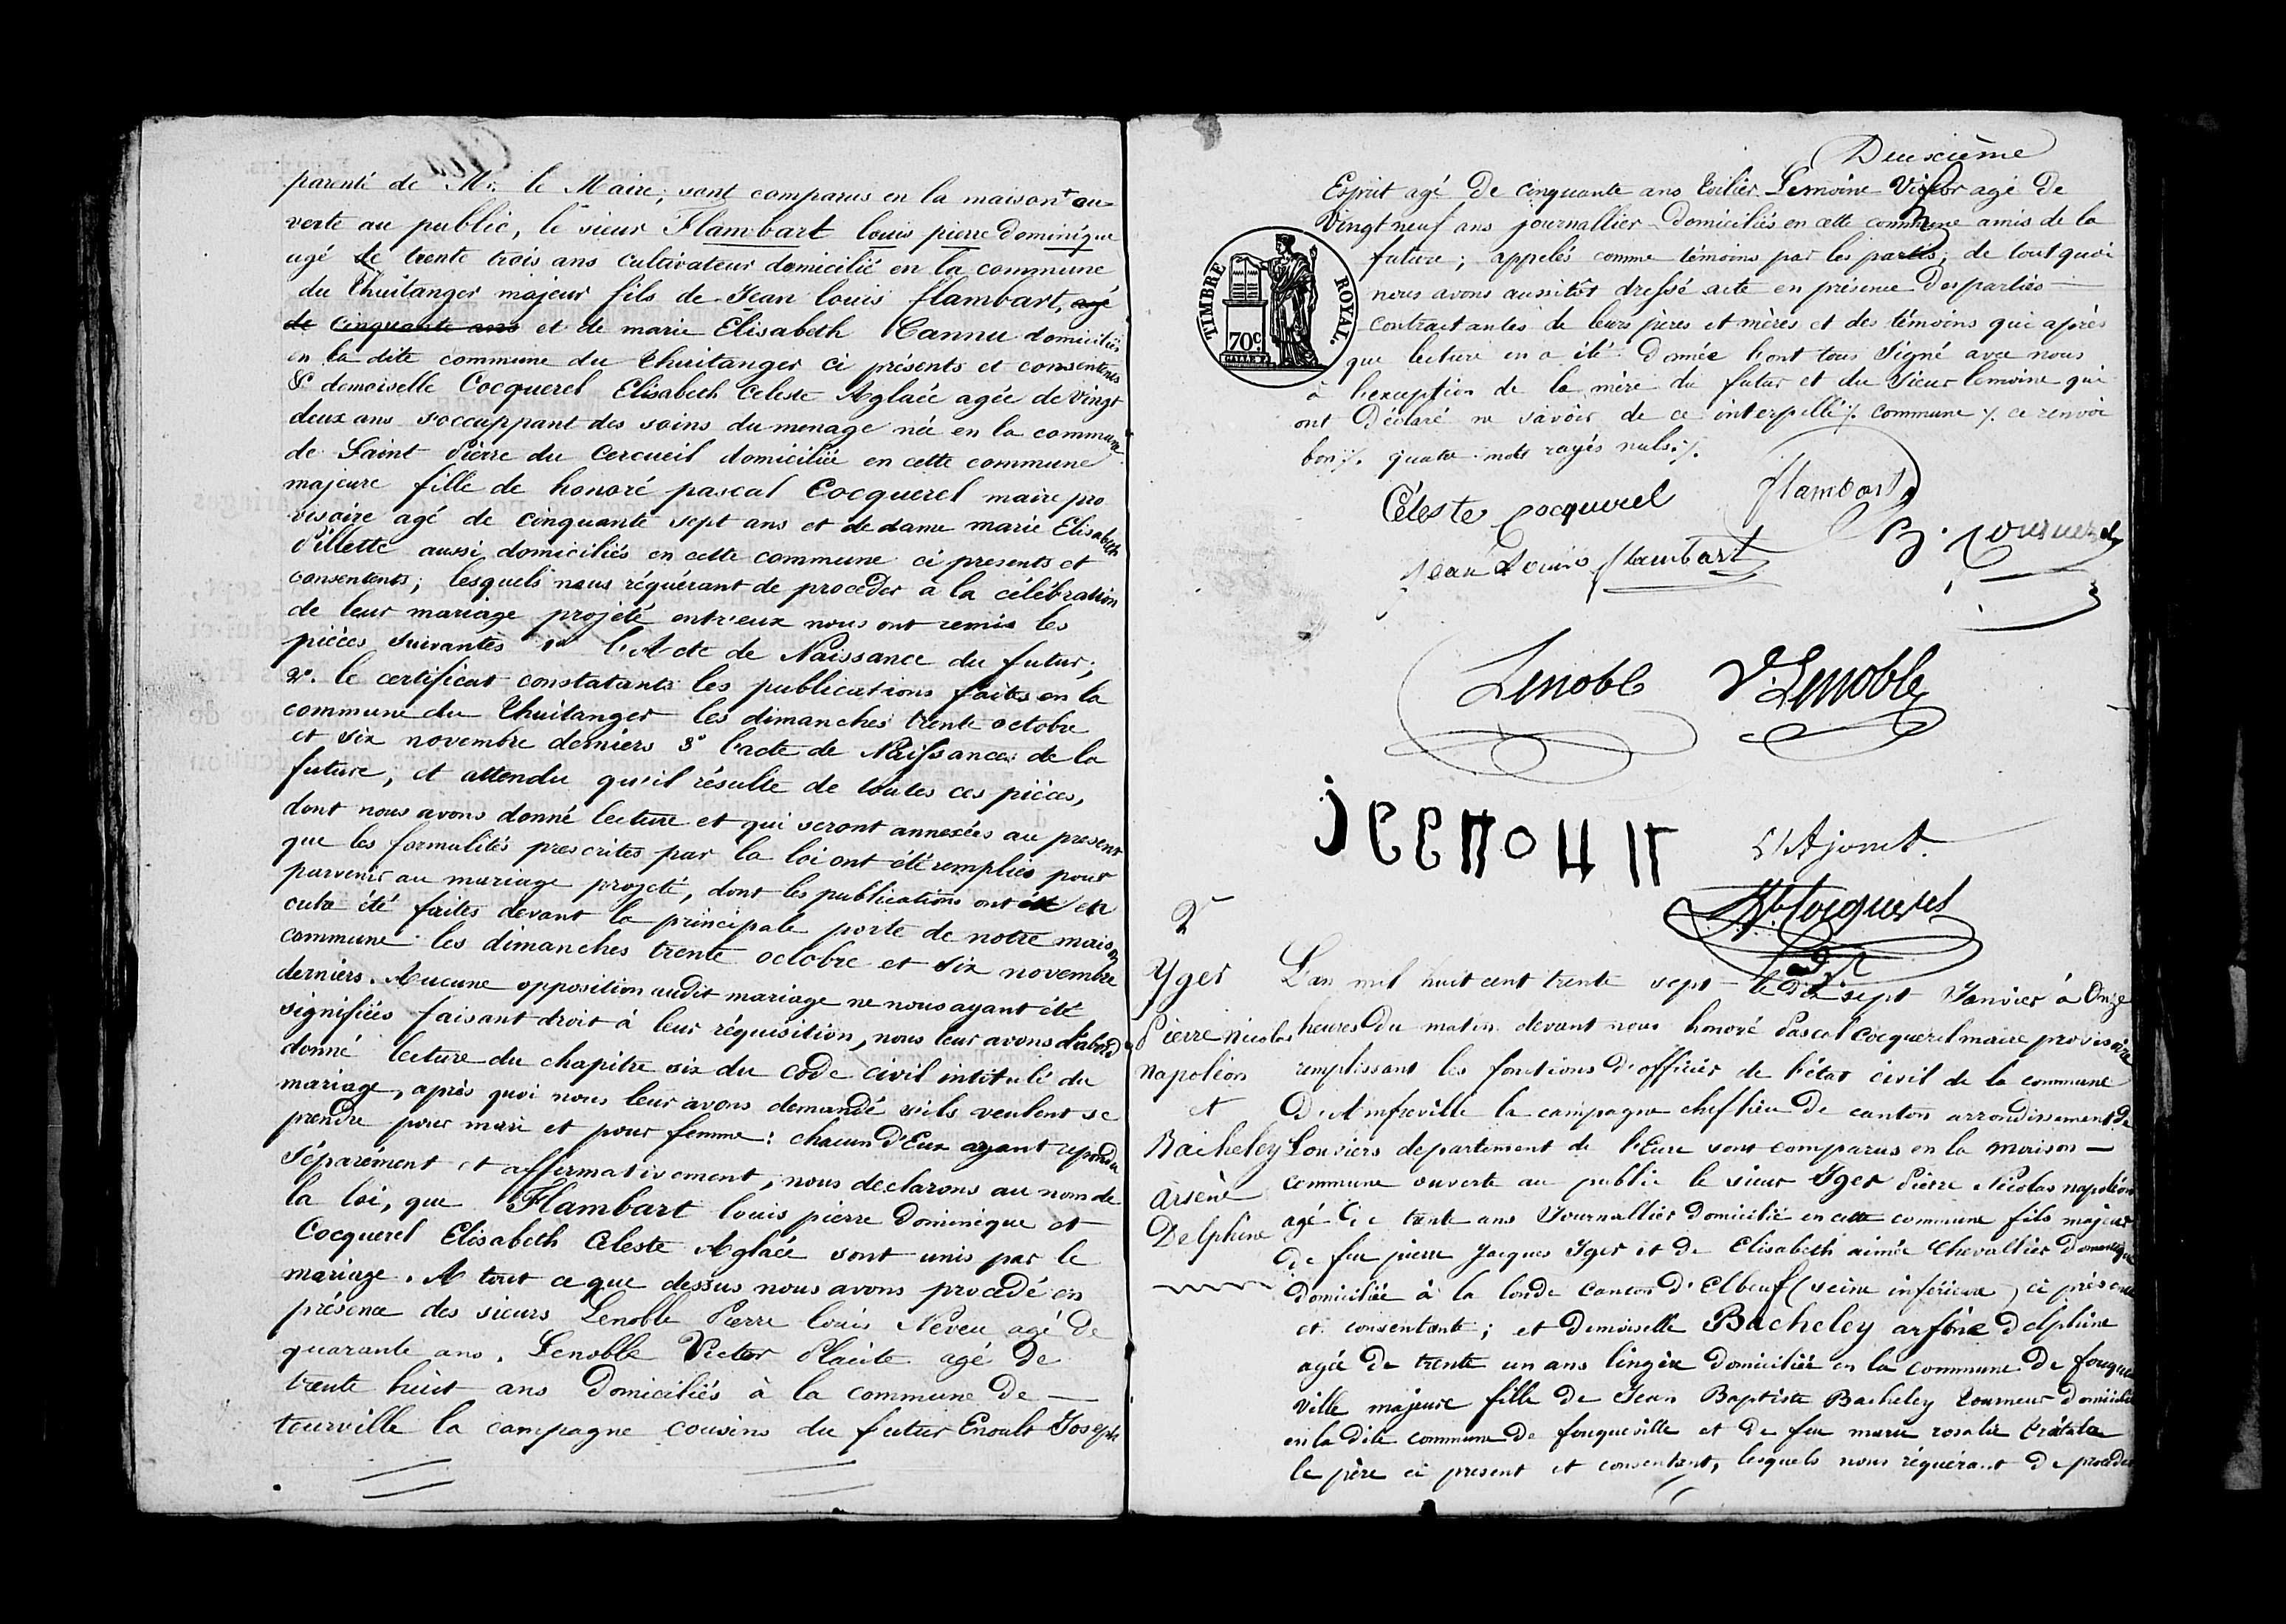 parenté de Mr. le Maire; sont comparus en la maison + ou-
verte au public, le sieur Flambart louis pierre dominique
agé de trente trois ans cultivateur domicilié en la commune
du Thuitanger majeur fils de Jean louis flambart, agé
de cinquante ans et de marie Elisabeth Cannu domiciliés
en la dite commune du thuitanger ci présents et consentents
& demoiselle Cocquerel Elisabeth Celeste Aglaée agée de vingt
deux ans s'occuppant des soins du menage née en la commune
de Saint Pierre du Cercueil domiciliée en cette commune
majeure fille de honoré pascal Cocquerel maire pro
visoire agé de cinquante sept ans et de dame marie Elisabeth
Pillette aussi domiciliés en cette commune ci presents et
consentents; lesquels nous réquérant de procéder à la célébration
de leur mariage projété entr'eux nous ont remis les
pièces suivantes 1º l'Acte de Naissance du futur;
2º. le certificat constatants les publications faites en la
commune du Thuitanger les dimanches trente octobre
et six novembre derniers 3º l'acte de Naissance de la
future, et attendu qu'il résulte de toutes ces pièces,
dont nous avons donné lecture et qui seront annexées au present
que les formalités prescrites par la loi ont été remplies pour
parvenir au mariage projeté, dont les publications ont été en
outre été faites devant la principale porte de notre maison
commune les dimanches trente octobre et six novembre
derniers. Aucune opposition audit mariage ne nous ayant été
signifiées faisant droit à leur réquisition, nous leur avons d'abord
donné lecture du chapitre six du code civil intitulé du
mariage, après quoi nous leur avons demandé s'ils veulent se
prendre pour mari et pour femme: chacun d'Eux ayant repondu
séparément et affirmativement, nous declarons au nom de
la loi, que Flambart louis pierre Dominique et
Cocquerel Elisabeth Celeste Aglaée sont unis par le
mariage. A tout ce que dessus nous avons procédé en
présence des sieurs Lenoble Pierre louis Neveu agé de
quarante ans, Lenoble Victor Placite agé de
trente huit ans Domiciliés à la commune de —
tourville la campagne cousins du futur Enoult Joseph
Deuxième
Esprit agé de cinquante ans toilier Lemoine Victor agé de
Vingt neuf ans journallier domiciliés en cette commune amis de la
future; appelés comme témoins par les parties, de tout quoi
nous avons aussitôt dressé acte en présence des parties
contractantes de leurs pères et mères et des témoins qui après
que lecture en a été donnée l'ont tous signé avec nous
à l'exception de la mère du futur et du sieur lemoine qui
ont Déclaré ne savoir de ce interpellé ⁒ commune ⁒ ce renvoi
bon ⁒. quatre mots rayés nuls ⁒.
TIMBRE ROYAL.
70c.
Céleste Cocquerel flambart
Jean Louis flambart
Lenoble V. Lenoble
L'Ajoint.
Cocquerel
2e
Yger
Pierre Nicolas
Napoléon
et
Bacheley
Arsène
Delphine
L'an mil huit cent trente sept le dix sept Janvier à Onze
heures du matin devant nous honoré Pascal Cocquerel maire provisoire
remplissant les fonctions d'officier de l'état civil de la commune
d'Amfreville la campagne chef lieu de canton arrondissement de
Louviers departement de l'Eure sont comparus en la maison —
commune ouverte au public le sieur Yger Pierre Nicolas napoléon
agé de trente ans Journallier domicilié en cette commune fils majeur
de feu pierre Jacques Yger et de Elisabeth aimée Chevallier
domiciliée à la londe canton d'Elbeuf (seine inférieure) ci présente
et consentante; et Demoiselle Bacheley arsène Delphine
agée de trente un ans lingère domiciliée en la commune de fouque
ville majeure fille de Jean Baptiste Bacheley tourneur domicilié
en la dite commune de fouqueville et de feu marie rosalie
le père ci present et consentant, lesquels nous réquérant de procéder